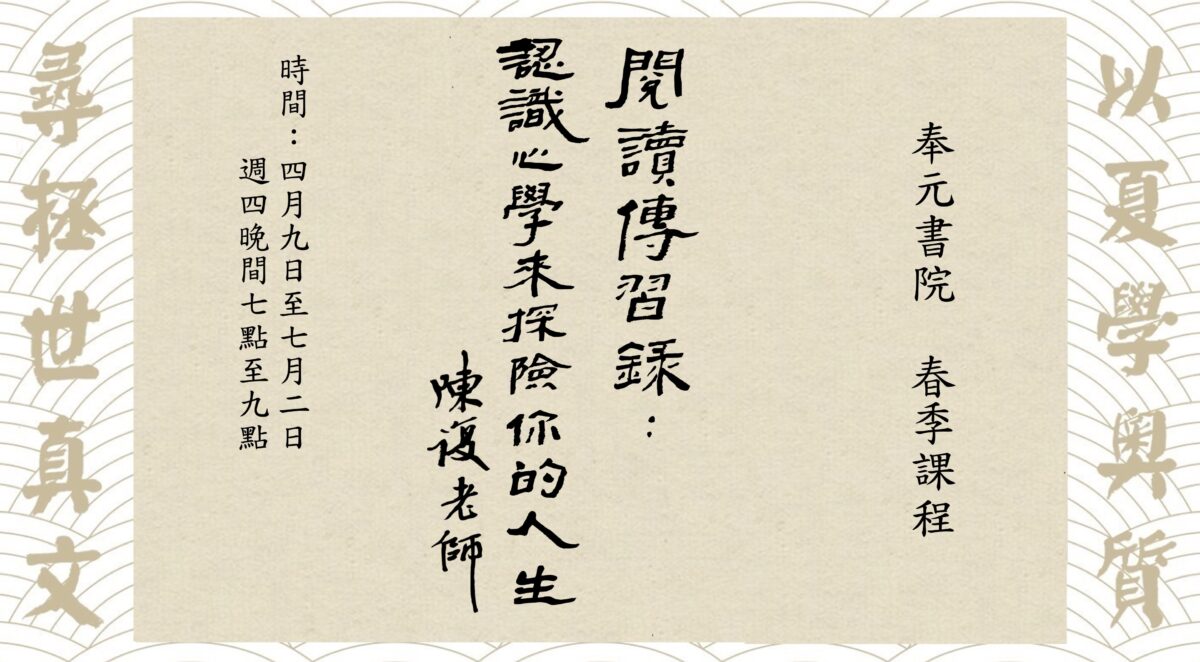 以夏學奧質
奉元書院 春季課程
閱讀傳習錄：
認識心學來探險你的人生
陳復老師
時間：四月九日至七月二日
週四晚間七點至九點
尋拯世真文